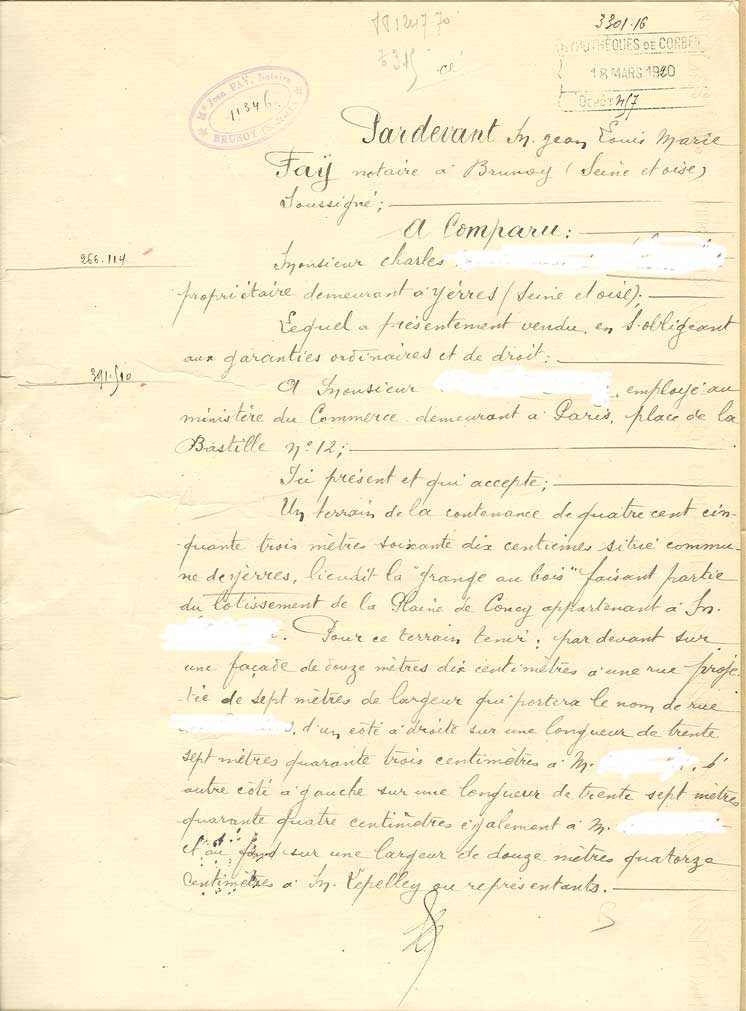 3301.16
HYPOTHÈQUES DE CORBEIL
18 MARS 1920
DÉPOT
Me Jean FAŸ, Notaire
11346
BRUNOY
Pardevant M. Jean Louis Marie
Faÿ notaire à Brunoy (Seine et oise)
Soussigné;
A Comparu:
266.114
Monsieur Charles
propriétaire demeurant à Yèrres (Seine et oise);
Lequel a présentement vendu, en s'obligeant
aux garanties ordinaires et de droit:
391.510
A Monsieur employé au
ministère du Commerce demeurant à Paris, place de la
Bastille N° 12;
Ici présent et qui accepte;
Un terrain de la contenance de quatre cent cin-
quante trois mètres soixante dix centièmes situé commu-
ne de yèrres, lieudit la "grange au bois" faisant partie
du lotissement de la Plaine de Concy appartenant à M.
Pour ce terrain tenir: par devant sur
une façade de douze mètres dix centimètres à une rue proje-
tée de sept mètres de largeur qui portera le nom de rue
d'un côté à droite sur une longueur de trente
sept mètres quarante trois centimètres à M. d'
autre côté à gauche sur une longueur de trente sept mètres
quarante quatre centimètres également à M.
et au fond sur une largeur de douze mètres quatorze
centimètres à M. Képelley ou représentants.